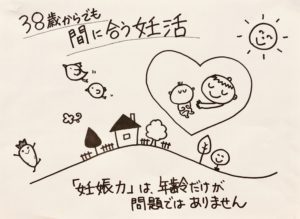 38歳からでも
間に合う妊活
「妊娠力」は、年齢だけが
問題ではありません